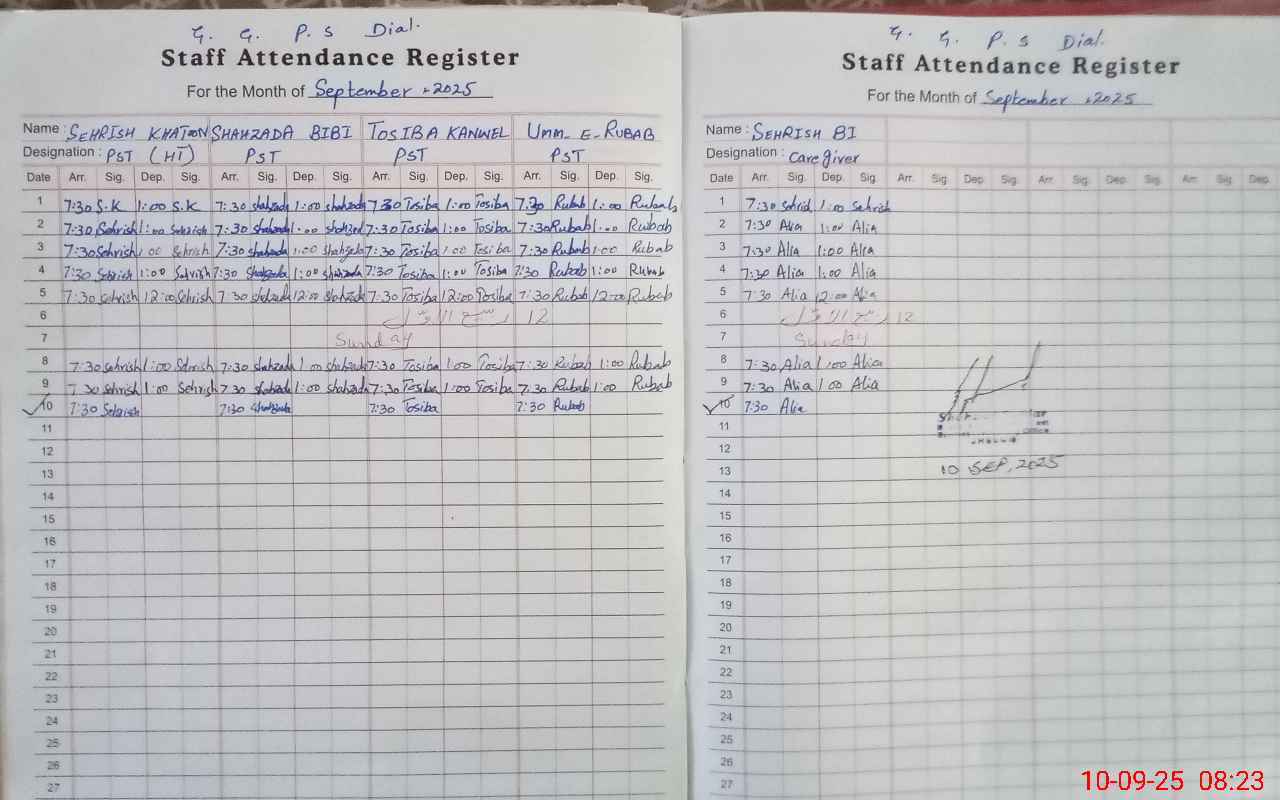 G. G. P. S Dial.
Staff Attendance Register
For the Month of September, 2025
Name : SEHRISH KHATOON SHAHZADA BIBI TOSIBA KANWEL Umm-E-RUBAB
Designation : PST (HT) PST PST PST
Date Arr. Sig. Dep. Sig. Arr. Sig. Dep. Sig. Arr. Sig. Dep. Sig. Arr. Sig. Dep. Sig.
1 7:30 S.K 1:00 S.K 7:30 shahzada 1:00 shahzada 7:30 Tosiba 1:00 Tosiba 7:30 Rubab 1:00 Rubab
2 7:30 Sehrish 1:00 Sehrish 7:30 shahzada 1:00 shahzad 7:30 Tosiba 1:00 Tosiba 7:30 Rubab 1:00 Rubab
3 7:30 Sehrish 1:00 Sehrish 7:30 shahzada 1:00 shahzada 7:30 Tosiba 1:00 Tosiba 7:30 Rubab 1:00 Rubab
4 7:30 Sehrish 1:00 Sehrish 7:30 Shahzada 1:00 shahzada 7:30 Tosiba 1:00 Tosiba 7:30 Rubab 1:00 Rubab
5 7:30 Sehrish 12:00 Sehrish 7:30 shahzada 12:00 shahzada 7:30 Tosiba 12:00 Tosiba 7:30 Rubab 12:00 Rubab
6 12 ربیع الاوّل
7 Sunday
8 7:30 Sehrish 1:00 Sehrish 7:30 shahzada 1:00 shahzada 7:30 Tosiba 1:00 Tosiba 7:30 Rubab 1:00 Rubab
9 7:30 Sehrish 1:00 Sehrish 7:30 shahzada 1:00 shahzada 7:30 Tosiba 1:00 Tosiba 7:30 Rubab 1:00 Rubab
10 7:30 Sehrish 7:30 Shahzada 7:30 Tosiba 7:30 Rubab
11
12
13
14
15
16
17
18
19
20
21
22
23
24
25
26
27
G. G. P. S Dial.
Staff Attendance Register
For the Month of September, 2025
Name : SEHRISH BI
Designation : Caregiver
Date Arr. Sig. Dep. Sig. Arr. Sig. Dep. Sig. Arr. Sig. Dep. Sig. Arr. Sig. Dep.
1 7:30 Sehrish 1:00 Sehrish
2 7:30 Alia 1:00 Alia
3 7:30 Alia 1:00 Alia
4 7:30 Alia 1:00 Alia
5 7:30 Alia 12:00 Alia
6 12 ربیع الاوّل
7 Sunday
8 7:30 Alia 1:00 Alia
9 7:30 Alia 1:00 Alia
10 7:30 Alia
11
12
13 10 SEP, 2025
14
15
16
17
18
19
20
21
22
23
24
25
26
27
10-09-25 08:23